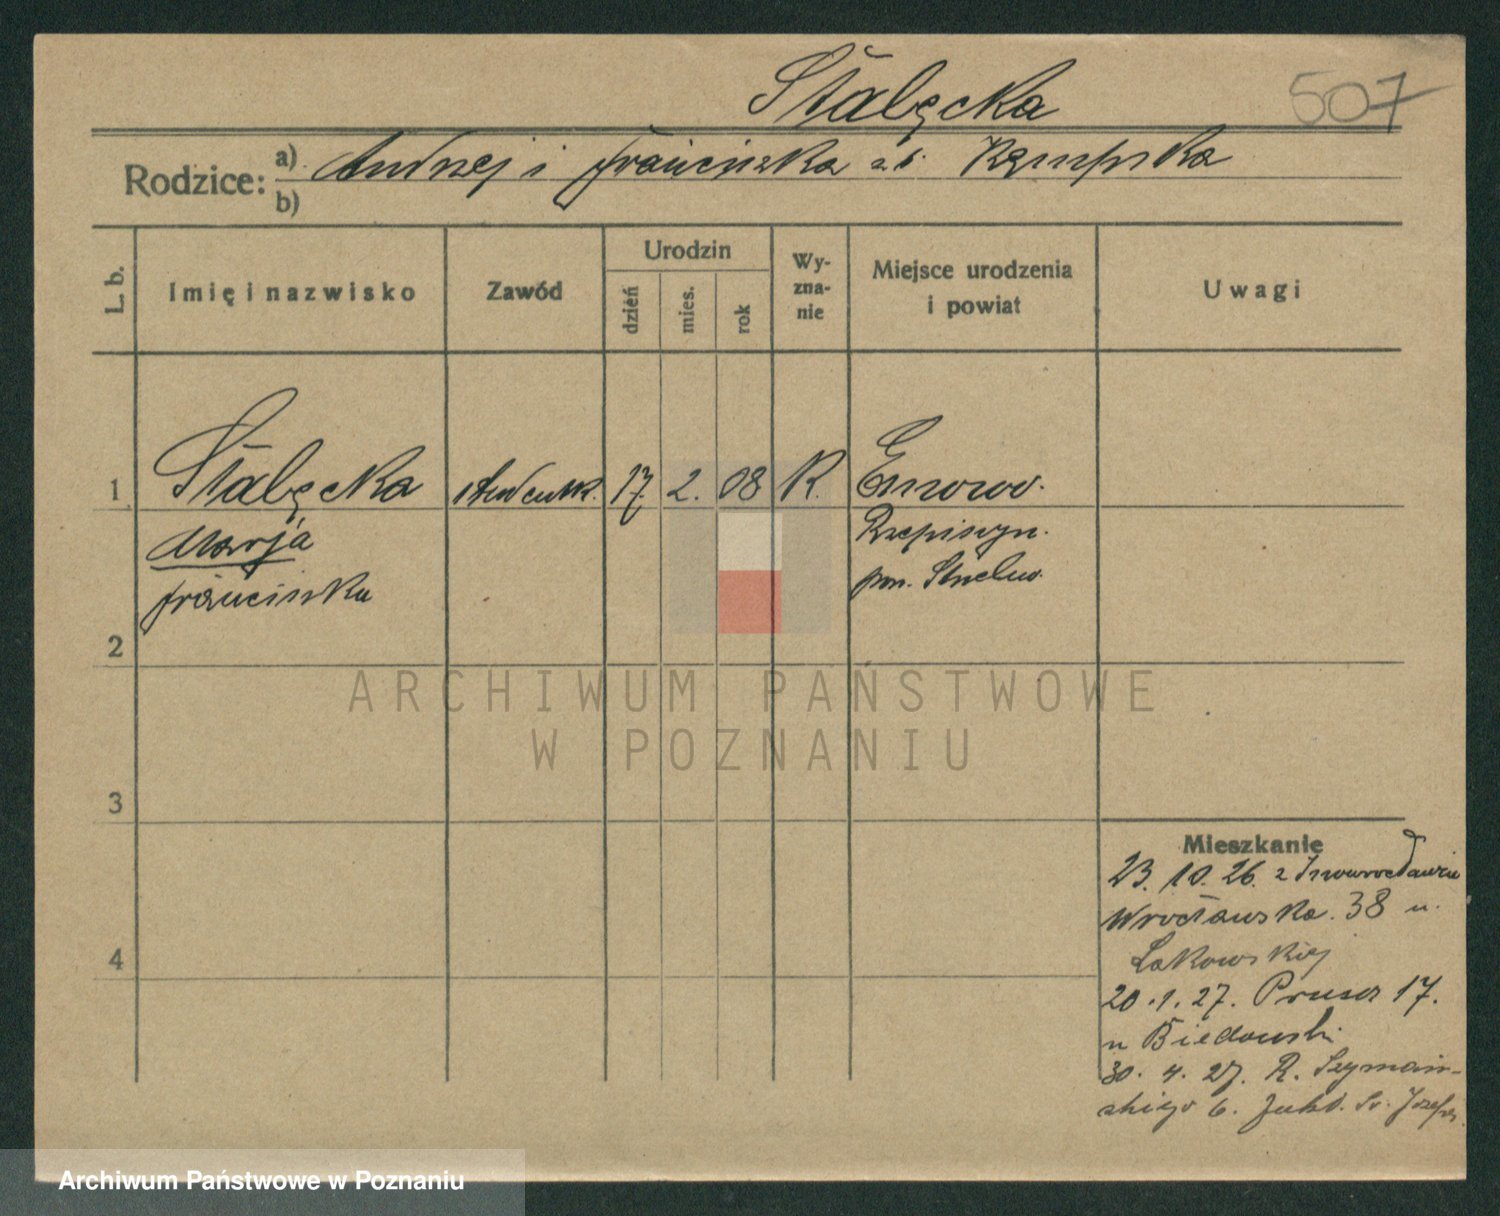 Stalęcka
507
Rodzice: a) Andrzej i Franciszka z d. Kempska
b)
L. b.
Imię i nazwisko
Zawód
Urodzin
dzień
mies.
rok
Wy-
zna-
nie
Miejsce urodzenia
i powiat
Uwagi
1 Stalęcka 17. 2. 08 R.
Marja
Franciszka
pow. Strzelno.
2
3
4
Mieszkanie
23. 10. 26. z Inowrocławia
Wrocławska. 38 u.
Łakowskiej
20. 1. 27. Prusa 17.
u Biedowski
30. 4. 27. R. Szymań-
skiego 6. Zakł. Św. Józefa.
ARCHIWUM PAŃSTWOWE
W POZNANIU
Archiwum Państwowe w Poznaniu